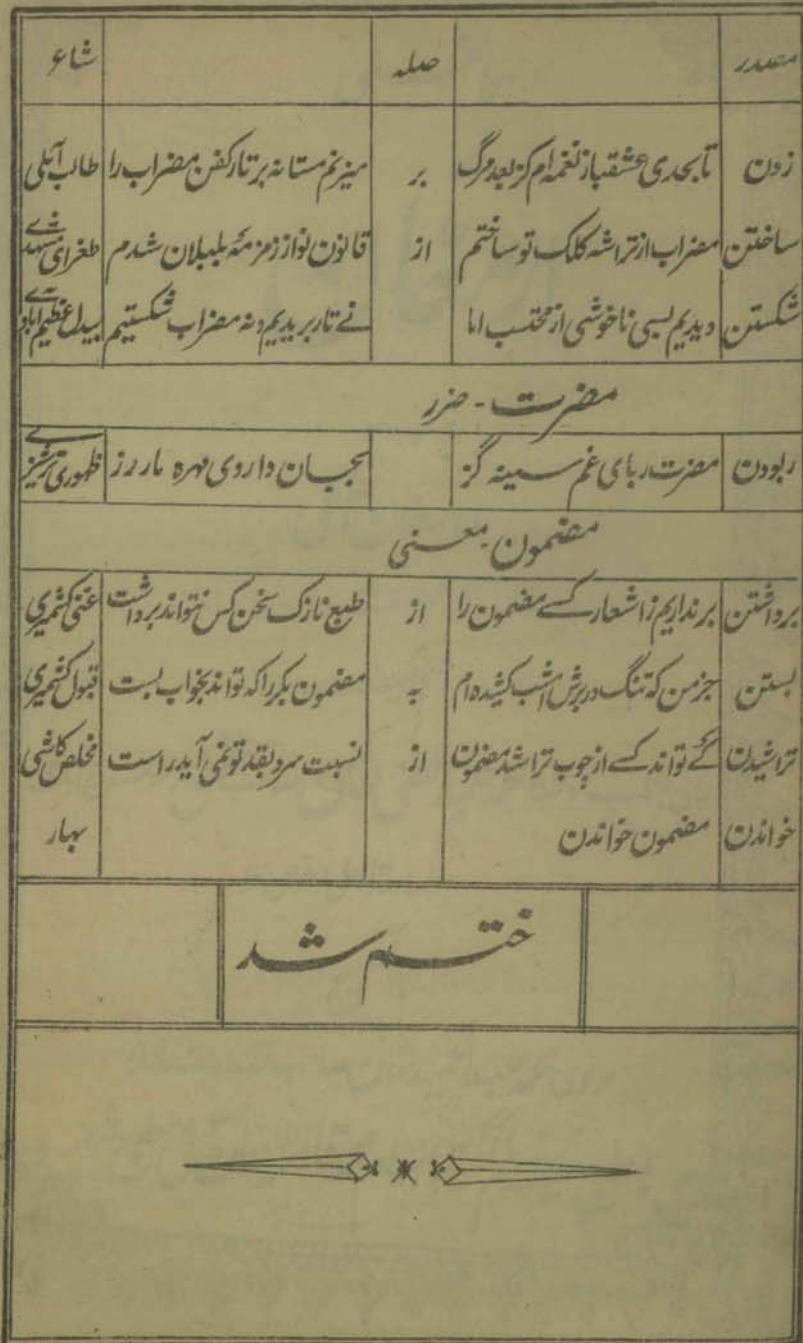 مصدر صله شاعر
زدن تابحدی عشقباز نغمه ام کز بعد مرگ بر میزنم مستانه بر تار کفن مضراب را طالب آملی
ساختن مضراب از تراشه کلک تو ساختم از قانون نواز زمزمهٔ بلبلان شدم طغرای مشهدے
شکستن دیدیم بسی ناخوشی از محتسب اما نے تار بریدیم و نه مضراب شکستیم بیدل عظیم آبادے
مضرت - ضرر
ربودن مضرت ربای غم سینه گز بجان داروی مهره مار رز ظهوری ترشیزے
مضمون - معنی
برداشتن برنداریم ز اشعار کسے مضمون را از طبع نازک سخن کس نتواند برداشت غنی کشمیری
بستن جز من که تنگ در برش امشب کشیده ام به مضمون بکر را که تواند بخواب بست قبول کشمیری
تراشیدن کَے تواند کسے از چوب تراشد مضمون از نسبت سرو بقد تو نمی آید راست مخلص کاشی
خواندن مضمون خواندن بهار
ختم شد